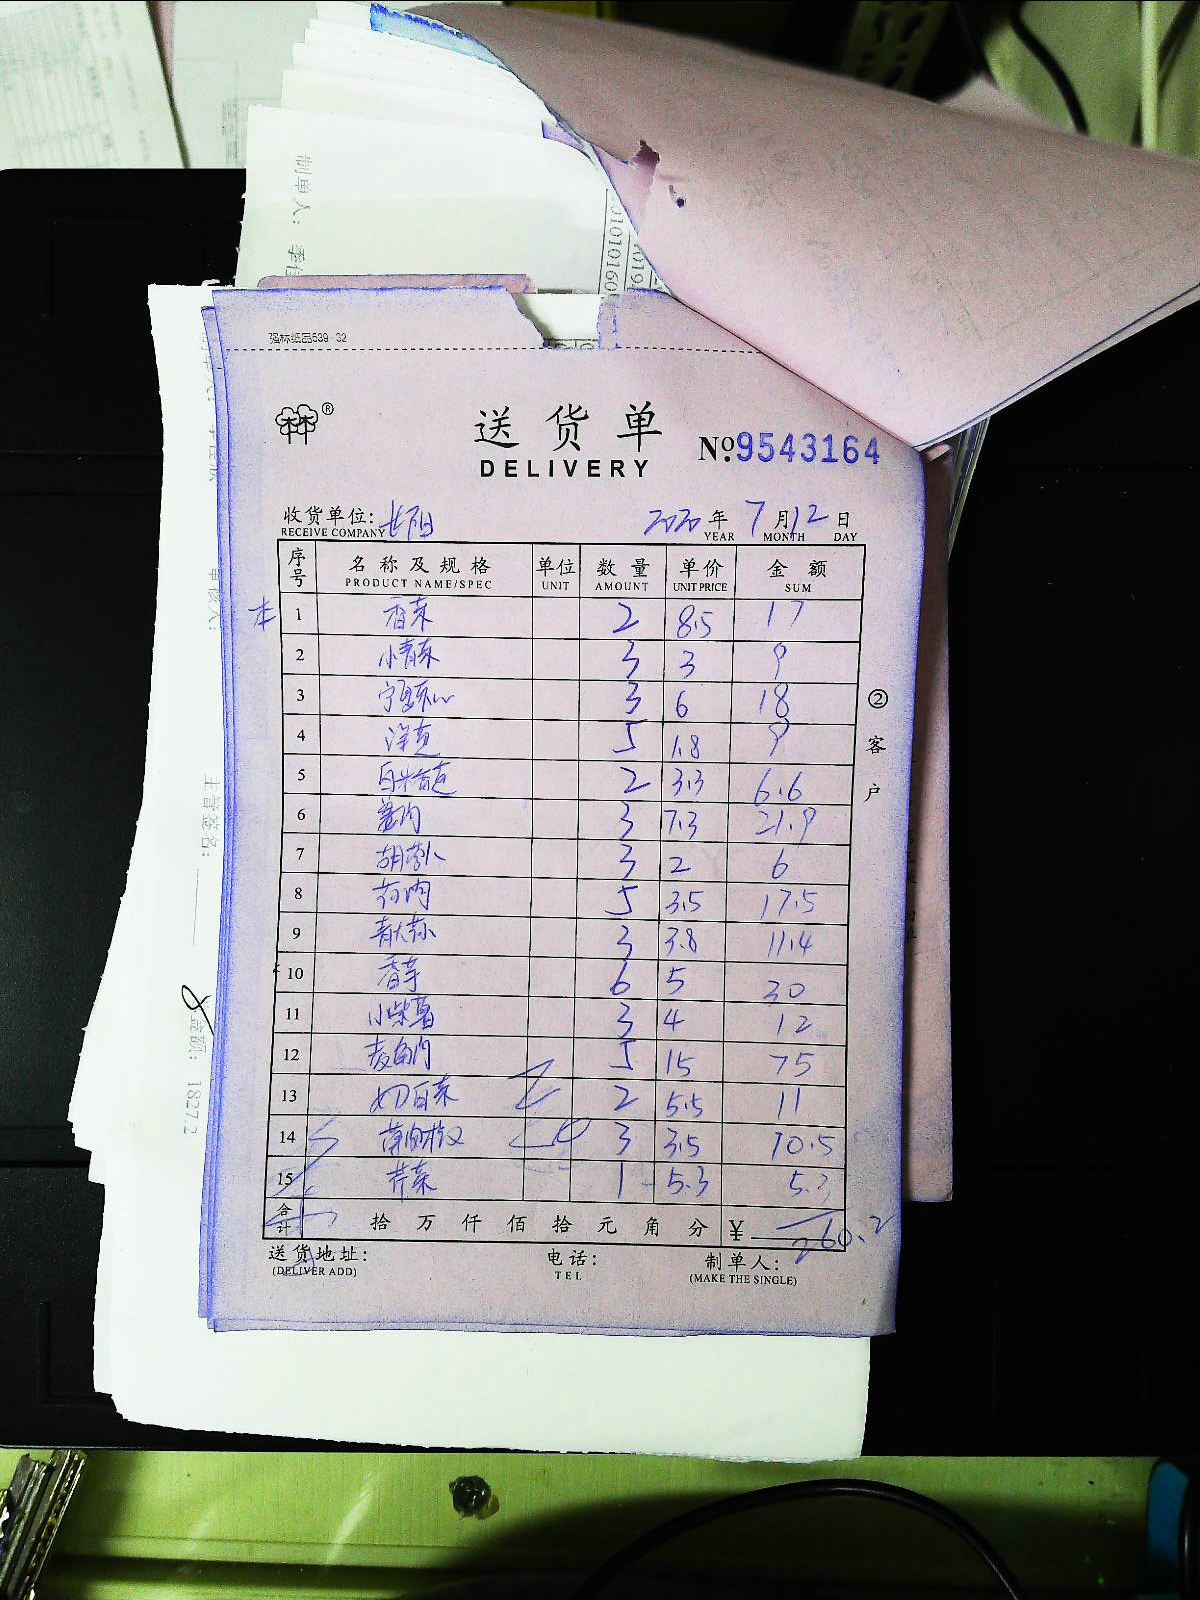 制单人：
强标纸品539-32
林®
送货单
DELIVERY
No.9543164
收货单位: 长阳 2020年7月12日
RECEIVE COMPANY YEAR MONTH DAY
序号 名称及规格 单位 数量 单价 金额
PRODUCT NAME/SPEC UNIT AMOUNT UNIT PRICE SUM
1 香菜 2 8.5 17
2 小青菜 3 3 9
3 3 6 18
4 洋葱 5 1.8 9
5 2 3.3 6.6
6 姜肉 3 7.3 21.9
7 胡萝卜 3 2 6
8 5 3.5 17.5
9 青大蒜 3 3.8 11.4
10 香芋 6 5 30
11 小紫薯 3 4 12
12 5 15 75
13 2 5.5 11
14 3 3.5 10.5
15 芹菜 1 5.3 5.3
合计 拾万仟佰拾元角分 ¥ 260.2
送货地址: 电话: 制单人:
(DELIVER ADD) TEL (MAKE THE SINGLE)
②客户
主管签名：
金额： 1827.2